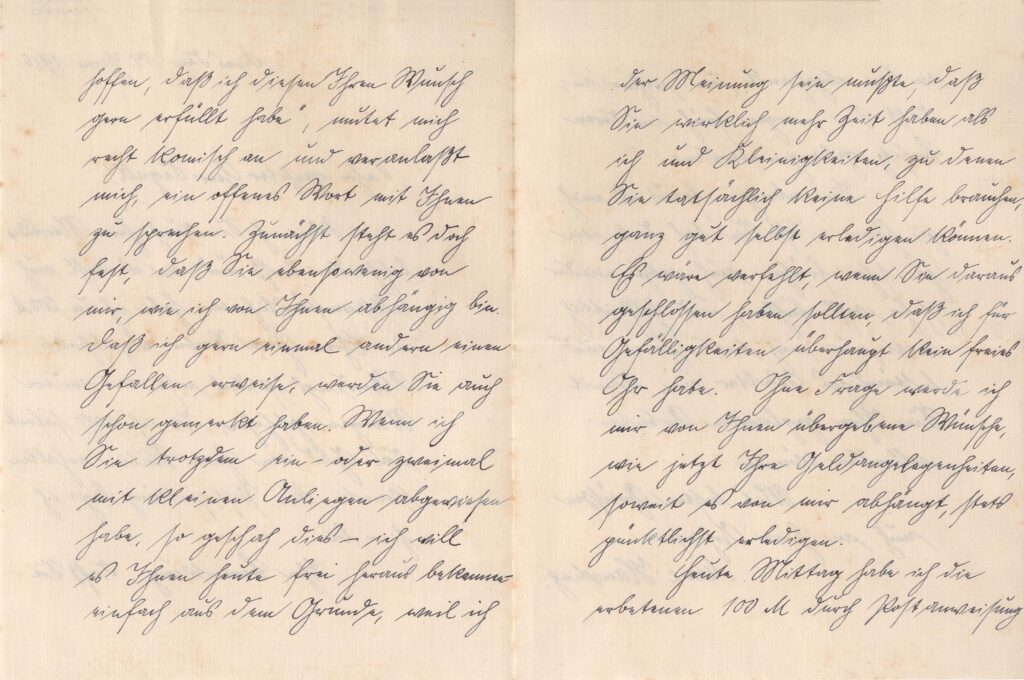 hoffen, daß ich diesen Ihren Wunsch
gern erfüllt habe", mutet mich
recht komisch an und veranlaßt
mich, ein offenes Wort mit Ihnen
zu sprechen. Zunächst steht es doch
fest, daß Sie ebensowenig von
mir, wie ich von Ihnen abhängig bin.
Daß ich gern einmal andern einen
Gefallen erweise, werden Sie auch
schon gemerkt haben. Wenn ich
Sie trotzdem ein- oder zweimal
mit kleinen Anliegen abgewiesen
habe, so geschah dies – ich will
es Ihnen heute frei heraus bekennen –
einfach aus dem Grunde, weil ich
der Meinung sein mußte, daß
Sie wirklich mehr Zeit haben als
ich und Kleinigkeiten, zu denen
Sie tatsächlich keine Hilfe brauchen,
ganz gut selbst erledigen können.
Es wäre verfehlt, wenn Sie daraus
geschlossen haben sollten, daß ich für
Gefälligkeiten überhaupt kein freies
Ohr habe. Ohne Frage werde ich
mir von Ihnen übergebene Wünsche,
wie jetzt Ihre Geldangelegenheiten,
soweit es von mir abhängt, stets
pünktlichst erledigen.
Heute Mittag habe ich die
erbetenen 100 M durch Postanweisung